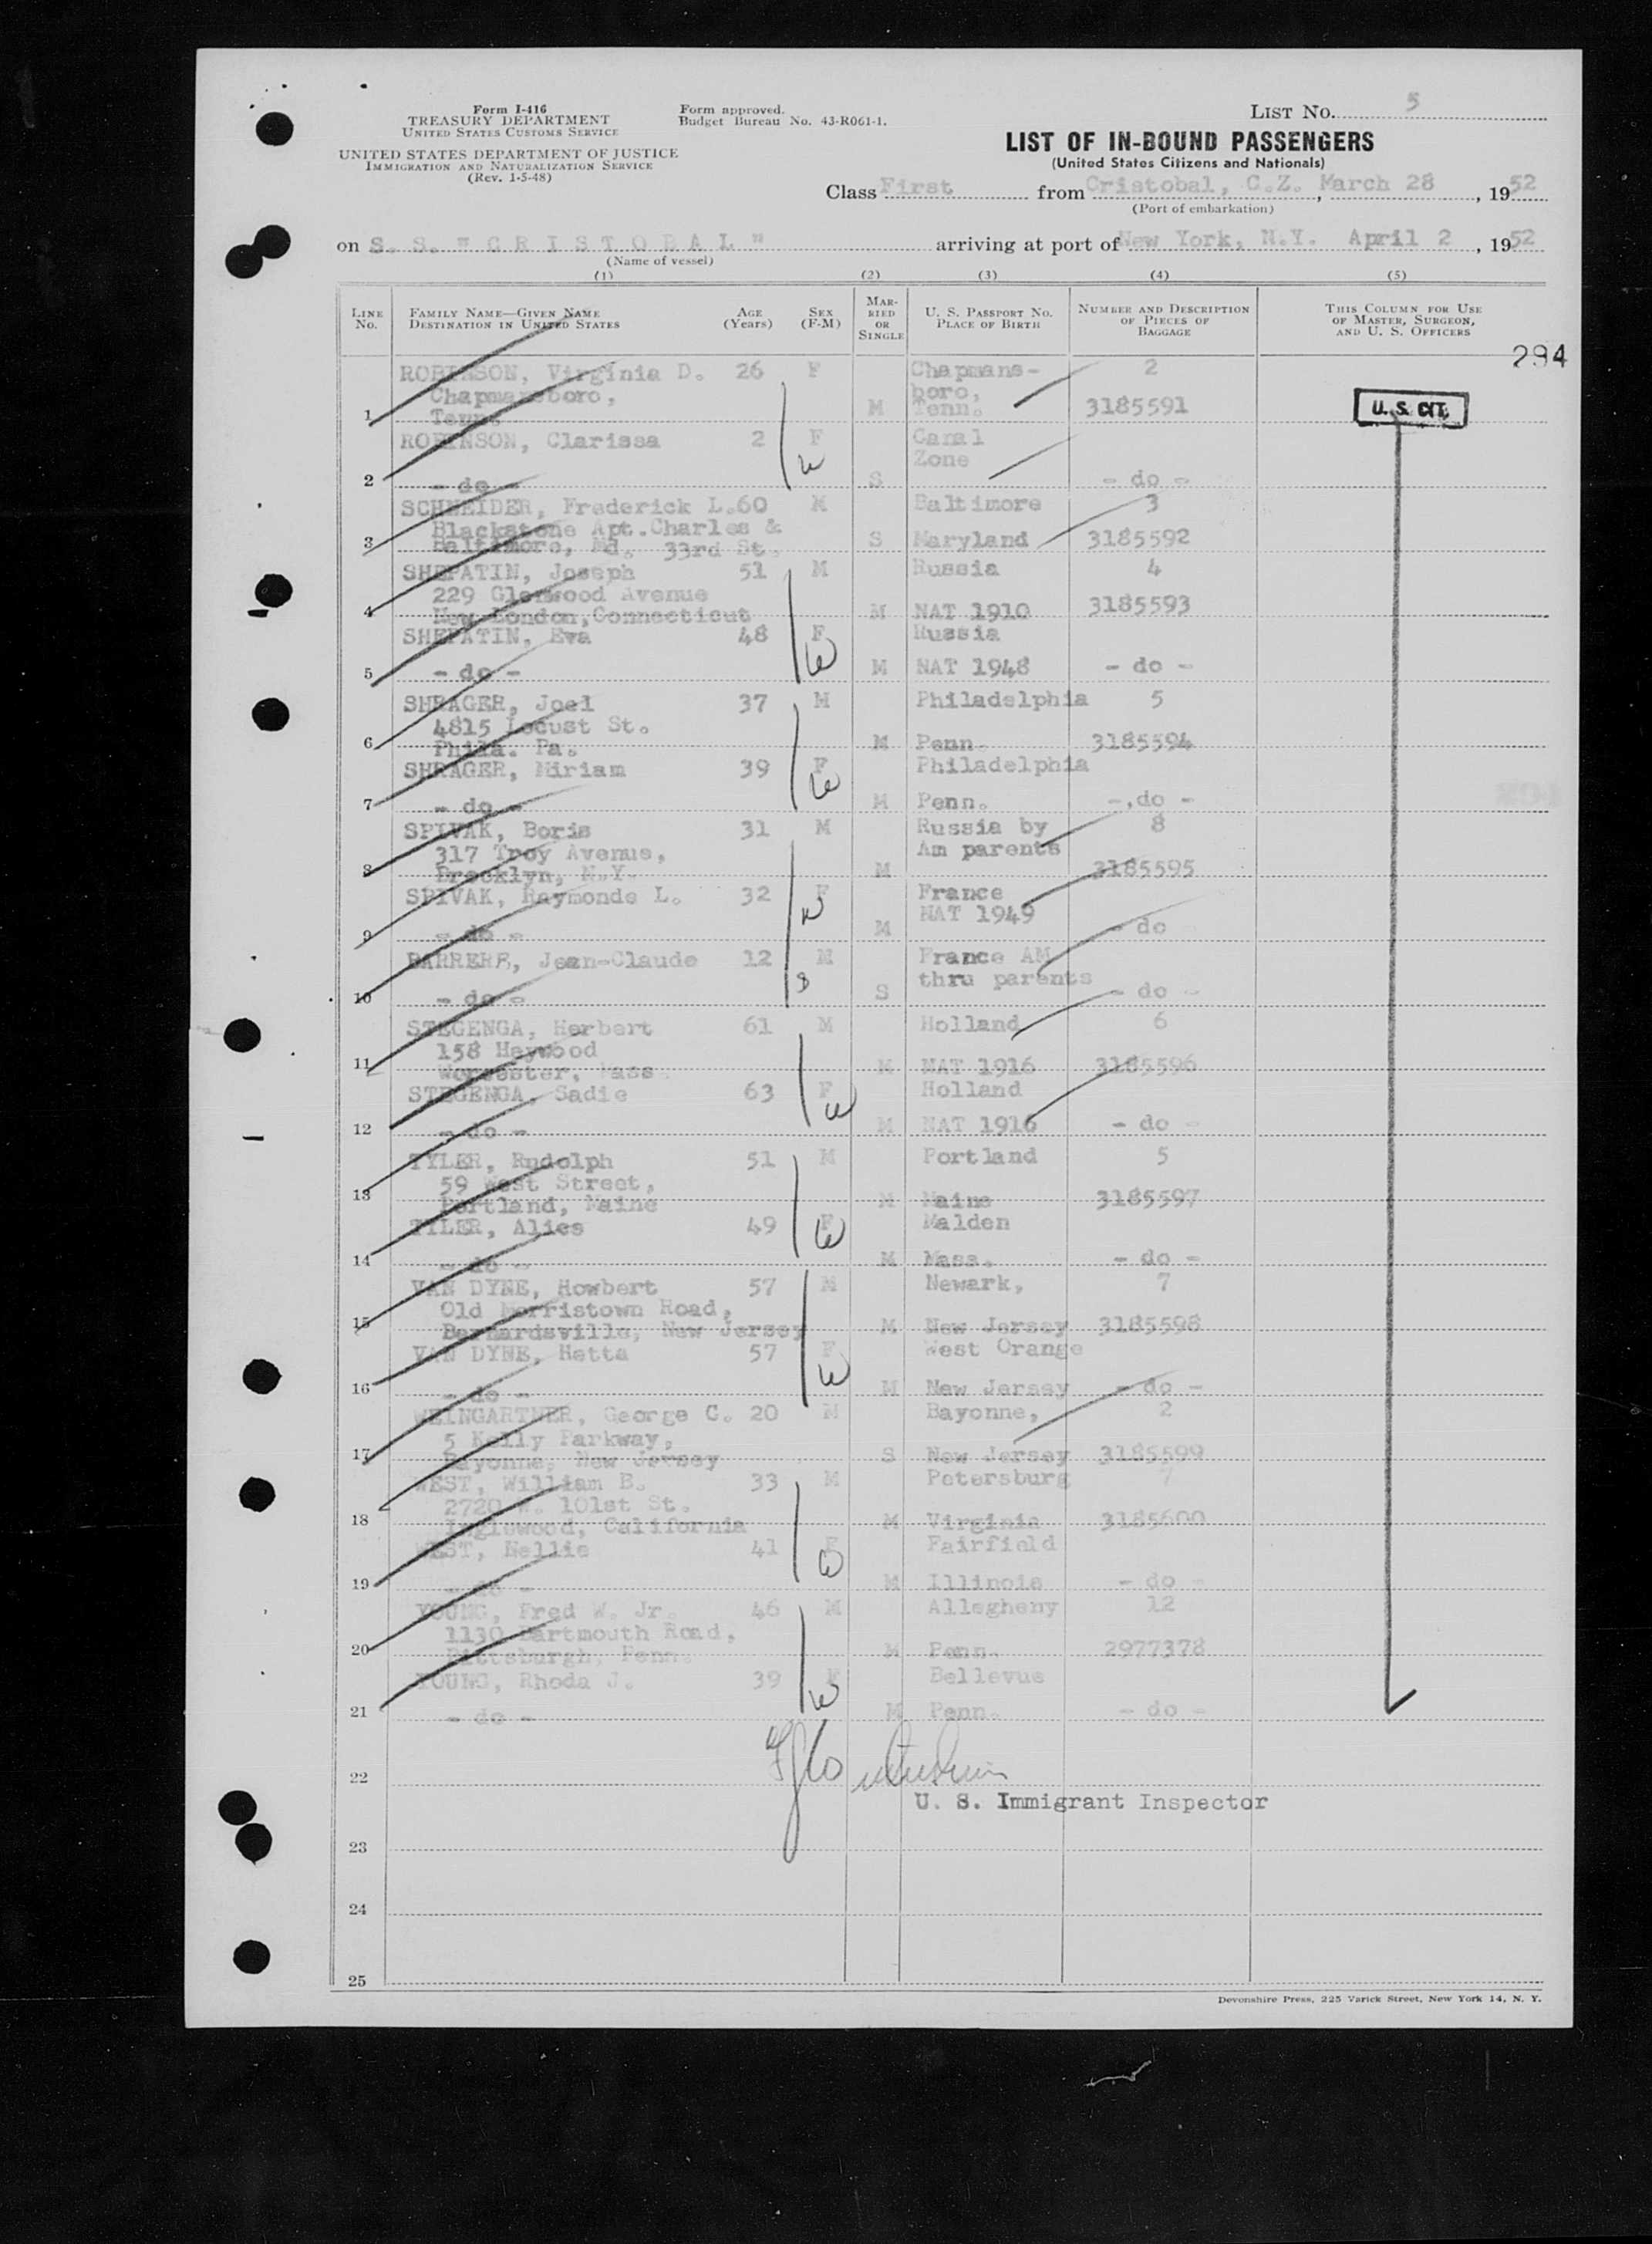 Form I-416
TREASURY DEPARTMENT
UNITED STATES CUSTOMS SERVICE
UNITED STATES DEPARTMENT OF JUSTICE
IMMIGRATION AND NATURALIZATION SERVICE
(Rev. 1-5-48)
Form approved.
Budget Bureau No. 43-R061-1.
LIST No. 5
LIST OF IN-BOUND PASSENGERS
(United States Citizens and Nationals)
Class First from Cristobal, C.Z. March 28, 1952
(Port of embarkation)
on S. S. "C R I S T O B A L" arriving at port of New York, N.Y. April 2, 1952
(Name of vessel)
(1) (2) (3) (4) (5)
LINE No. FAMILY NAME—GIVEN NAME DESTINATION IN UNITED STATES AGE (Years) SEX (F-M) MARRIED OR SINGLE U. S. PASSPORT No. PLACE OF BIRTH NUMBER AND DESCRIPTION OF PIECES OF BAGGAGE THIS COLUMN FOR USE OF MASTER, SURGEON, AND U. S. OFFICERS
294
U. S. CIT.
ROBINSON, Virginia D. 26 F Chapmans- 2
Chapmansboro, boro,
1 Tenn. M Tenn. 3185591
ROBINSON, Clarissa 2 F Canal
Zone
2 - do - S - do -
SCHNEIDER, Frederick L. 60 M Baltimore 3
Blackstone Apt. Charles &
3 Baltimore, Md. 33rd St. S Maryland 3185592
SHEPATIN, Joseph 51 M Russia 4
229 Glenwood Avenue
4 New London, Connecticut M NAT 1910 3185593
SHEPATIN, Eva 48 F Russia
5 - do - M NAT 1948 - do -
SHRAGER, Joel 37 M Philadelphia 5
4815 Locust St.
6 Phila. Pa. M Penn. 3185594
SHRAGER, Miriam 39 F Philadelphia
7 - do - M Penn. - do -
SPIVAK, Boris 31 M Russia by 8
317 Troy Avenue, Am parents
8 Brooklyn, N.Y. M 3185595
SPIVAK, Raymonde L. 32 F France
NAT 1949
9 - do - M - do
BARRERE, Jean-Claude 12 M France AM
thru parents
10 - do - S - do -
STEGENGA, Herbert 61 M Holland 6
158 Heywood
11 Worcester, Mass. M NAT 1916 3185596
STEGENGA, Sadie 63 F Holland
12 - do - M NAT 1916 - do -
TYLER, Rudolph 51 M Portland 5
59 West Street,
13 Portland, Maine M Maine 3185597
TYLER, Alice 49 F Malden
14 - do - M Mass. - do -
VAN DYNE, Howbert 57 M Newark, 7
Old Morristown Road,
15 Bernardsville, New Jersey M New Jersey 3185598
VAN DYNE, Hetta 57 F West Orange
16 - do - M New Jersey - do -
WEINGARTNER, George C. 20 M Bayonne, 2
5 Kelly Parkway,
17 Bayonne, New Jersey S New Jersey 3185599
WEST, William B. 33 M Petersburg 7
2720 W. 101st St.
18 Inglewood, California M Virginia 3185600
WEST, Nellie 41 F Fairfield
19 - do - M Illinois - do -
YOUNG, Fred W. Jr. 46 M Allegheny 12
1130 Dartmouth Road,
20 Pittsburgh, Penn. M Penn. 2977378
YOUNG, Rhoda J. 39 F Bellevue
21 - do - M Penn. - do -
22
U. S. Immigrant Inspector
23
24
25
Devonshire Press, 225 Varick Street, New York 14, N. Y.